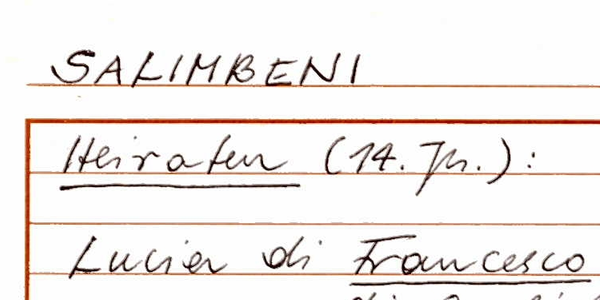 SALIMBENI
Heiraten (14. Jh.):
Lucia di Francesco